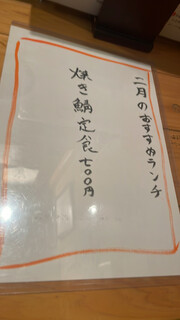 二月のおすすめランチ
焼き鯖定食 七〇〇円